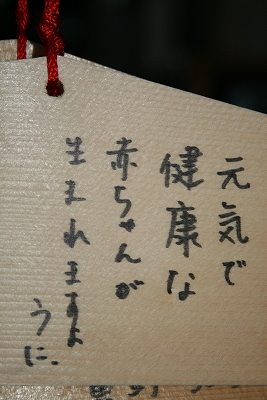 元気で
健康な
赤ちゃんが
生まれますよ
うに.